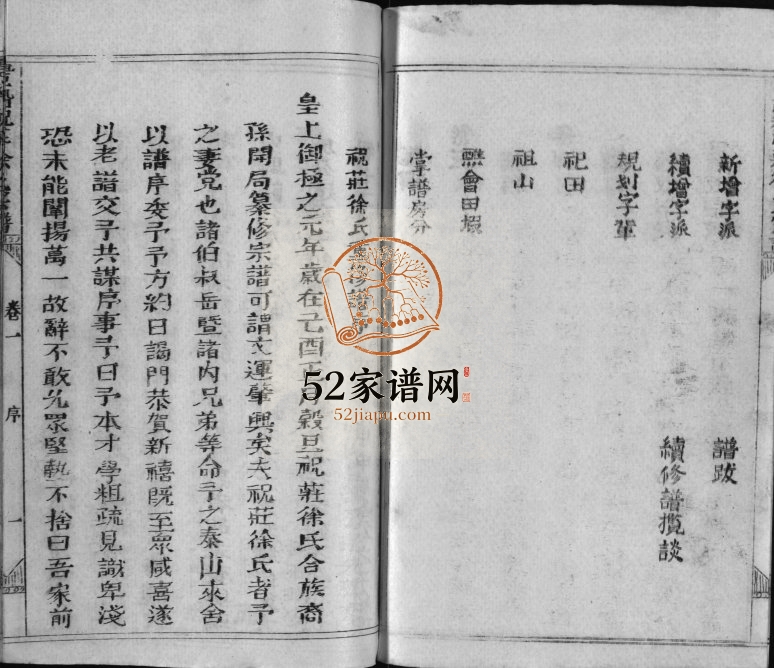 新增字派
譜跋
續增字派
續修譜攬談
規划字輩
祀田
祖山
醮會田塅
掌譜房分
祝莊徐氏重修譜序
皇上御極之元年歲在己酉正月穀旦祝莊徐氏合族裔
孫開局纂修宗譜可謂文運肇興矣夫祝莊徐氏者予
之妻党也諸伯叔岳暨諸內兄弟等命予之泰山來舍
以譜序委予予方約日謁門恭賀新禧既至眾咸喜遂
以老譜交予共謀序事予曰予本才學粗疏見識卑淺
恐未能闡揚萬一故辭不敢允眾堅執不捨曰吾家前
卷一
序
一
52家谱网
52jiapu.com